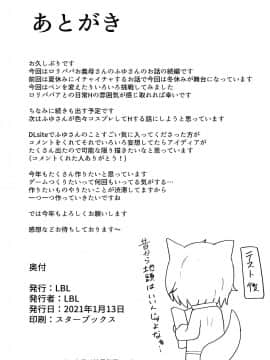 あとがき
お久しぶりです
今回はロリババお義母さんのふゆさんのお話の続編です
前回は夏休みにイチャイチャするお話で今回は冬休みが舞台になっています
今回はペンを変えたりいろいろ挑戦してみました
ロリババアとの日常Hの雰囲気が感じ取れれば幸いです
ちなみに続きも出す予定です
次はふゆさんが色々コスプレしてHする話にしようと思っています
DLsiteでふゆさんのことすごい気に入ってくださった方が
コメントをくれてそれでいろいろ妄想してたらアイディアが
たくさん出たので可能な限り描きたいなと思っています
(コメントくれた人ありがとう！)
今年もたくさん作りたいと思ってます
ゲームつくりたいって何回もいってる気がする…
作りたいものやりたいことが渋滞してますから
一つ一つ作っていきたいですね
では今年もよろしくお願いします
感想などお待ちしております～
テスト後
昔から地頭はいいんじゃよなぁ…
奥付
発行：LBL
発行者：LBL
発行日：2021年1月13日
印刷：スターブックス